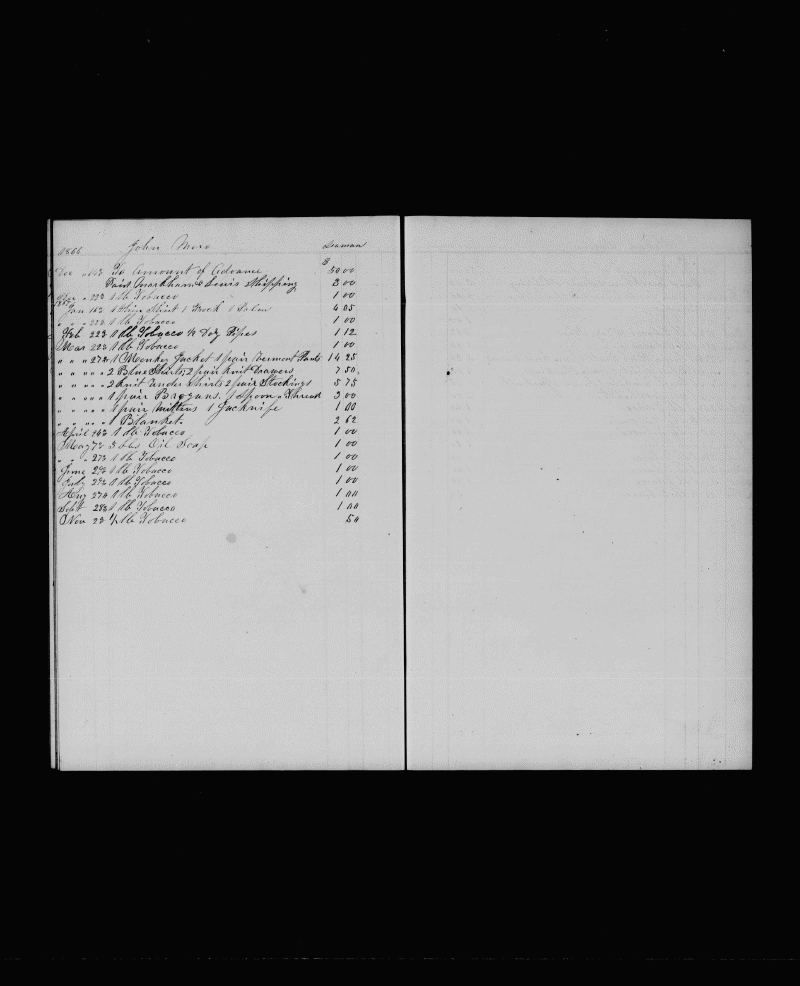 1866 John Seaman
$
Dec " To Amount of Advance 50 00
Paid Markham & Lewis Shipping 3 00
" 223 1 lb Tobacco 1 00
Jan 1 Shirt 1 Frock 4 05
" " 223 1 lb Tobacco 1 00
Feb 223 1 lb Tobacco ½ Doz Pipes 1 12
Mar 223 1 lb Tobacco 1 00
" " " 272 1 Monkey Jacket 1 pair Vermont Pants 14 25
" " " " " 2 Blue Shirts, 2 pair Knit Drawers 7 50
" " " " " 2 Knit Under Shirts 2 pair Stockings 5 75
" " " " " 1 pair Brogans. 1 Spoon " Thread 3 00
" " " " " 1 pair Mittens 1 Jacknife 1 00
" " " " " 1 Blanket. 2 62
April 1 lb Tobacco 1 00
May 3 Lbs Oil Soap 1 00
" " 273 1 lb Tobacco 1 00
June 1 lb Tobacco 1 00
July 1 lb Tobacco 1 00
Aug 274 1 lb Tobacco 1 00
Sept 1 lb Tobacco 1 00
Nov 23 ½ lb Tobacco 50